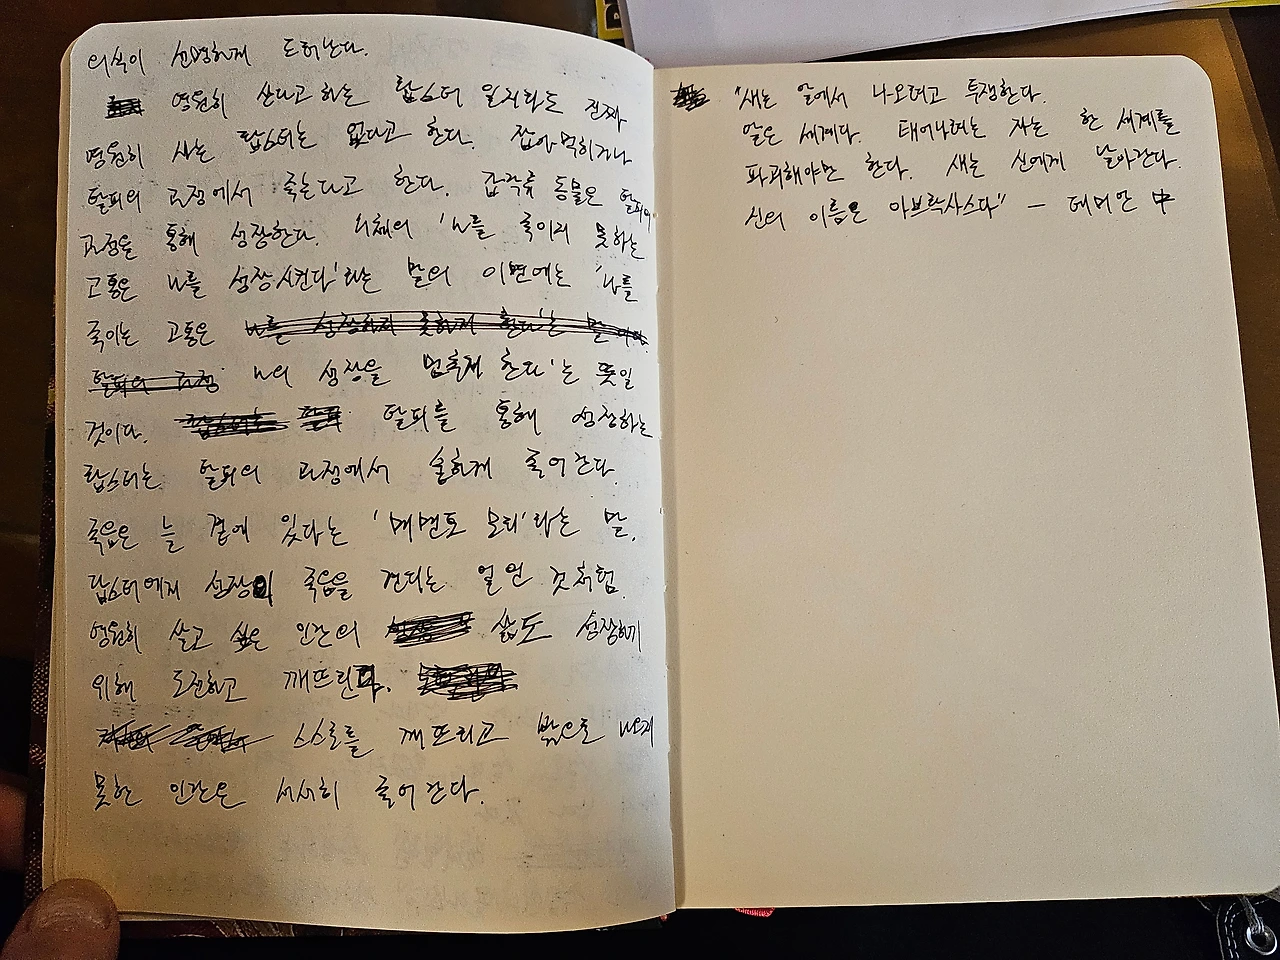 의식이 선명하게 드러난다.
영원히 산다고 하는 랍스터 일지라도 진짜
영원히 사는 랍스터는 없다고 한다. 잡아 먹히거나
탈피의 과정에서 죽는다고 한다. 갑각류 동물은 탈피의
과정을 통해 성장한다. 니체의 '나를 죽이지 못하는
고통은 나를 성장시킨다'라는 말의 이면에는 '나를
죽이는 고통은 나를 성장하지 못하게 한다'는 말
탈피의 과정 나의 성장을 멈추게 한다'는 뜻일
것이다. 랍스터는 탈피 탈피를 통해 성장하는
랍스터는 탈피의 과정에서 숱하게 죽어간다.
죽음은 늘 곁에 있다는 '메멘토 모리'라는 말.
랍스터에게 성장의 죽음을 견디는 일인 것처럼.
영원히 살고 싶은 인간의 삶도 성장하기
위해 도전하고 깨뜨린다.
스스로를 깨뜨리고 밖으로 나오지
못한 인간은 서서히 죽어간다.
"새는 알에서 나오려고 투쟁한다.
알은 세계다. 태어나려는 자는 한 세계를
파괴해야만 한다. 새는 신에게 날아간다.
신의 이름은 아브락사스다" – 데미안 中